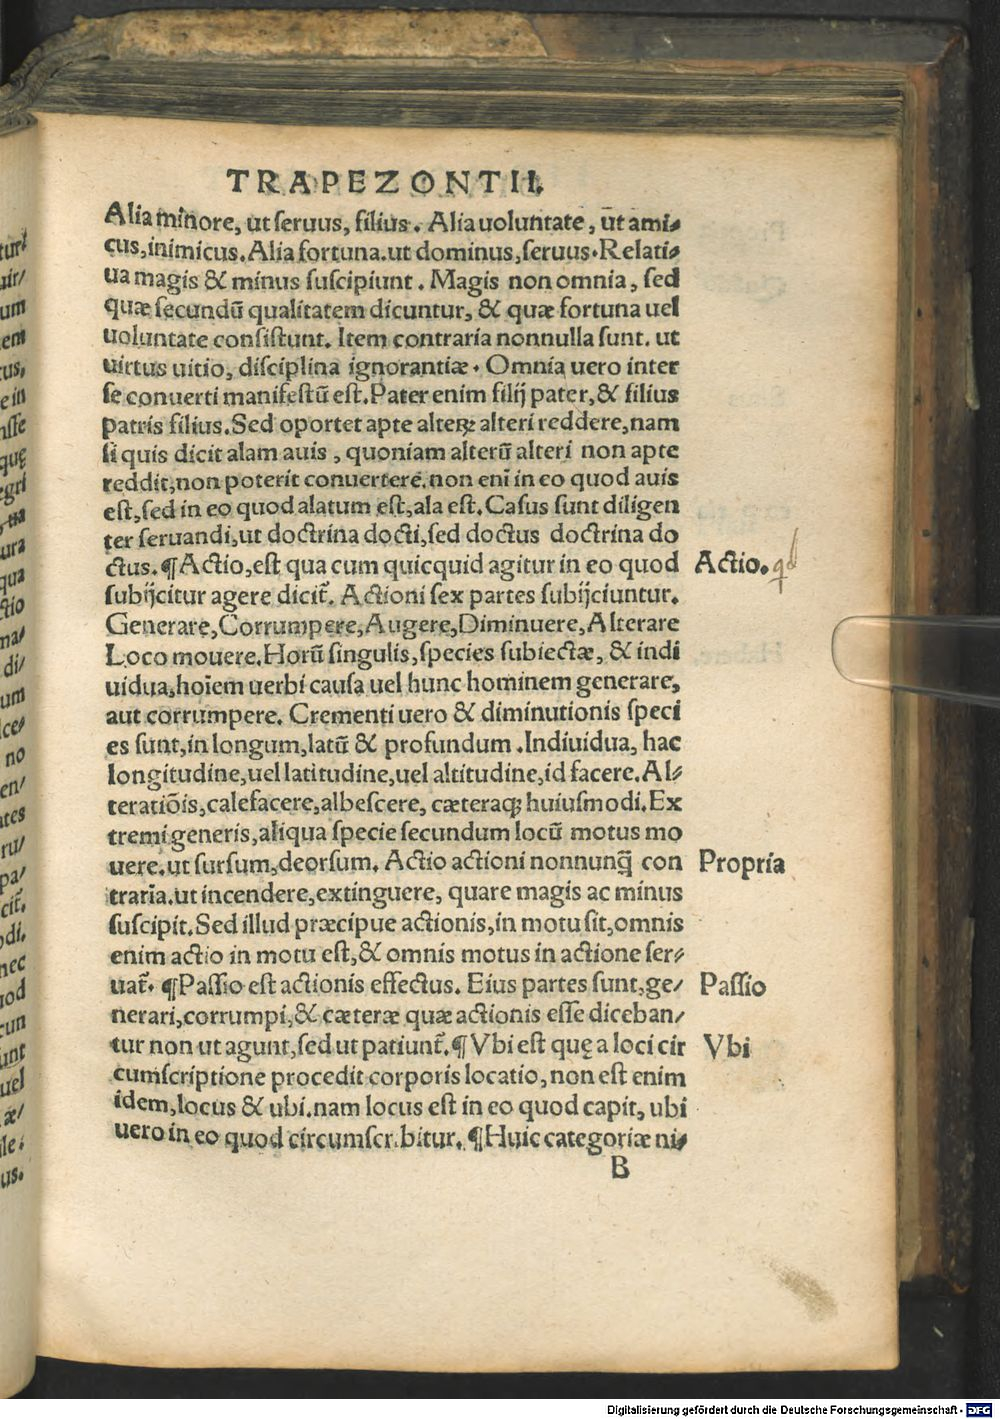 TRAPEZONTII.
Alia minore, ut ſeruus, filius. Alia uoluntate, ut ami⸗
cus, inimicus. Alia fortuna. ut dominus, ſeruus. Relati⸗
ua magis & minus ſuſcipiunt. Magis non omnia, ſed
quæ ſecundũ qualitatem dicuntur, & quæ fortuna uel
uoluntate conſiſtunt. Item contraria nonnulla ſunt. ut
uirtus uitio, diſciplina ignorantiæ. Omnia uero inter
ſe conuerti manifeſtũ eſt. Pater enim filij pater, & filius
patris filius. Sed oportet apte alterꝝ alteri reddere, nam
ſi quis dicit alam auis, quoniam alterũ alteri non apte
reddit, non poterit conuertere. non enĩ in eo quod auis
eſt, ſed in eo quod alatum eſt, ala eſt. Caſus ſunt diligen
ter ſeruandi, ut doctrina docti, ſed doctus doctrina do
ctus. ¶ Actio, eſt qua cum quicquid agitur in eo quod
Actio.
ſubijcitur agere dicit̃. Actioni ſex partes ſubijciuntur.
Generare, Corrumpere, Augere, Diminuere, Alterare
Loco mouere. Horũ ſingulis, ſpecies ſubiectæ, & indi
uidua, hoĩem uerbi cauſa uel hunc hominem generare,
aut corrumpere. Crementi uero & diminutionis ſpeci
es ſunt, in longum, latũ & profundum. Indiuidua, hac
longitudine, uel latitudine, uel altitudine, id facere. Al⸗
teratiõis, calefacere, albeſcere, cæteraq; huiuſmodi. Ex
tremi generis, aliqua ſpecie ſecundum locũ motus mo
uere. ut ſurſum, deorſum. Actio actioni nonnunq̃ con
Propria
traria. ut incendere, extinguere, quare magis ac minus
ſuſcipit. Sed illud præcipue actionis, in motu ſit, omnis
enim actio in motu eſt, & omnis motus in actione ſer⸗
uat̃. ¶ Paſſio eſt actionis effectus. Eius partes ſunt, ge⸗
Paſſio
nerari, corrumpi, & cæteræ quæ actionis eſſe diceban⸗
tur non ut agunt, ſed ut patiunt̃. ¶ Vbi eſt quę a loci cir
Vbi
cumſcriptione procedit corporis locatio, non eſt enim
idem, locus & ubi. nam locus eſt in eo quod capit, ubi
uero in eo quod circumſcr.bitur. ¶ Huic categoriæ ni⸗
B
Digitalisierung gefördert durch die Deutsche Forschungsgemeinschaft - DFG